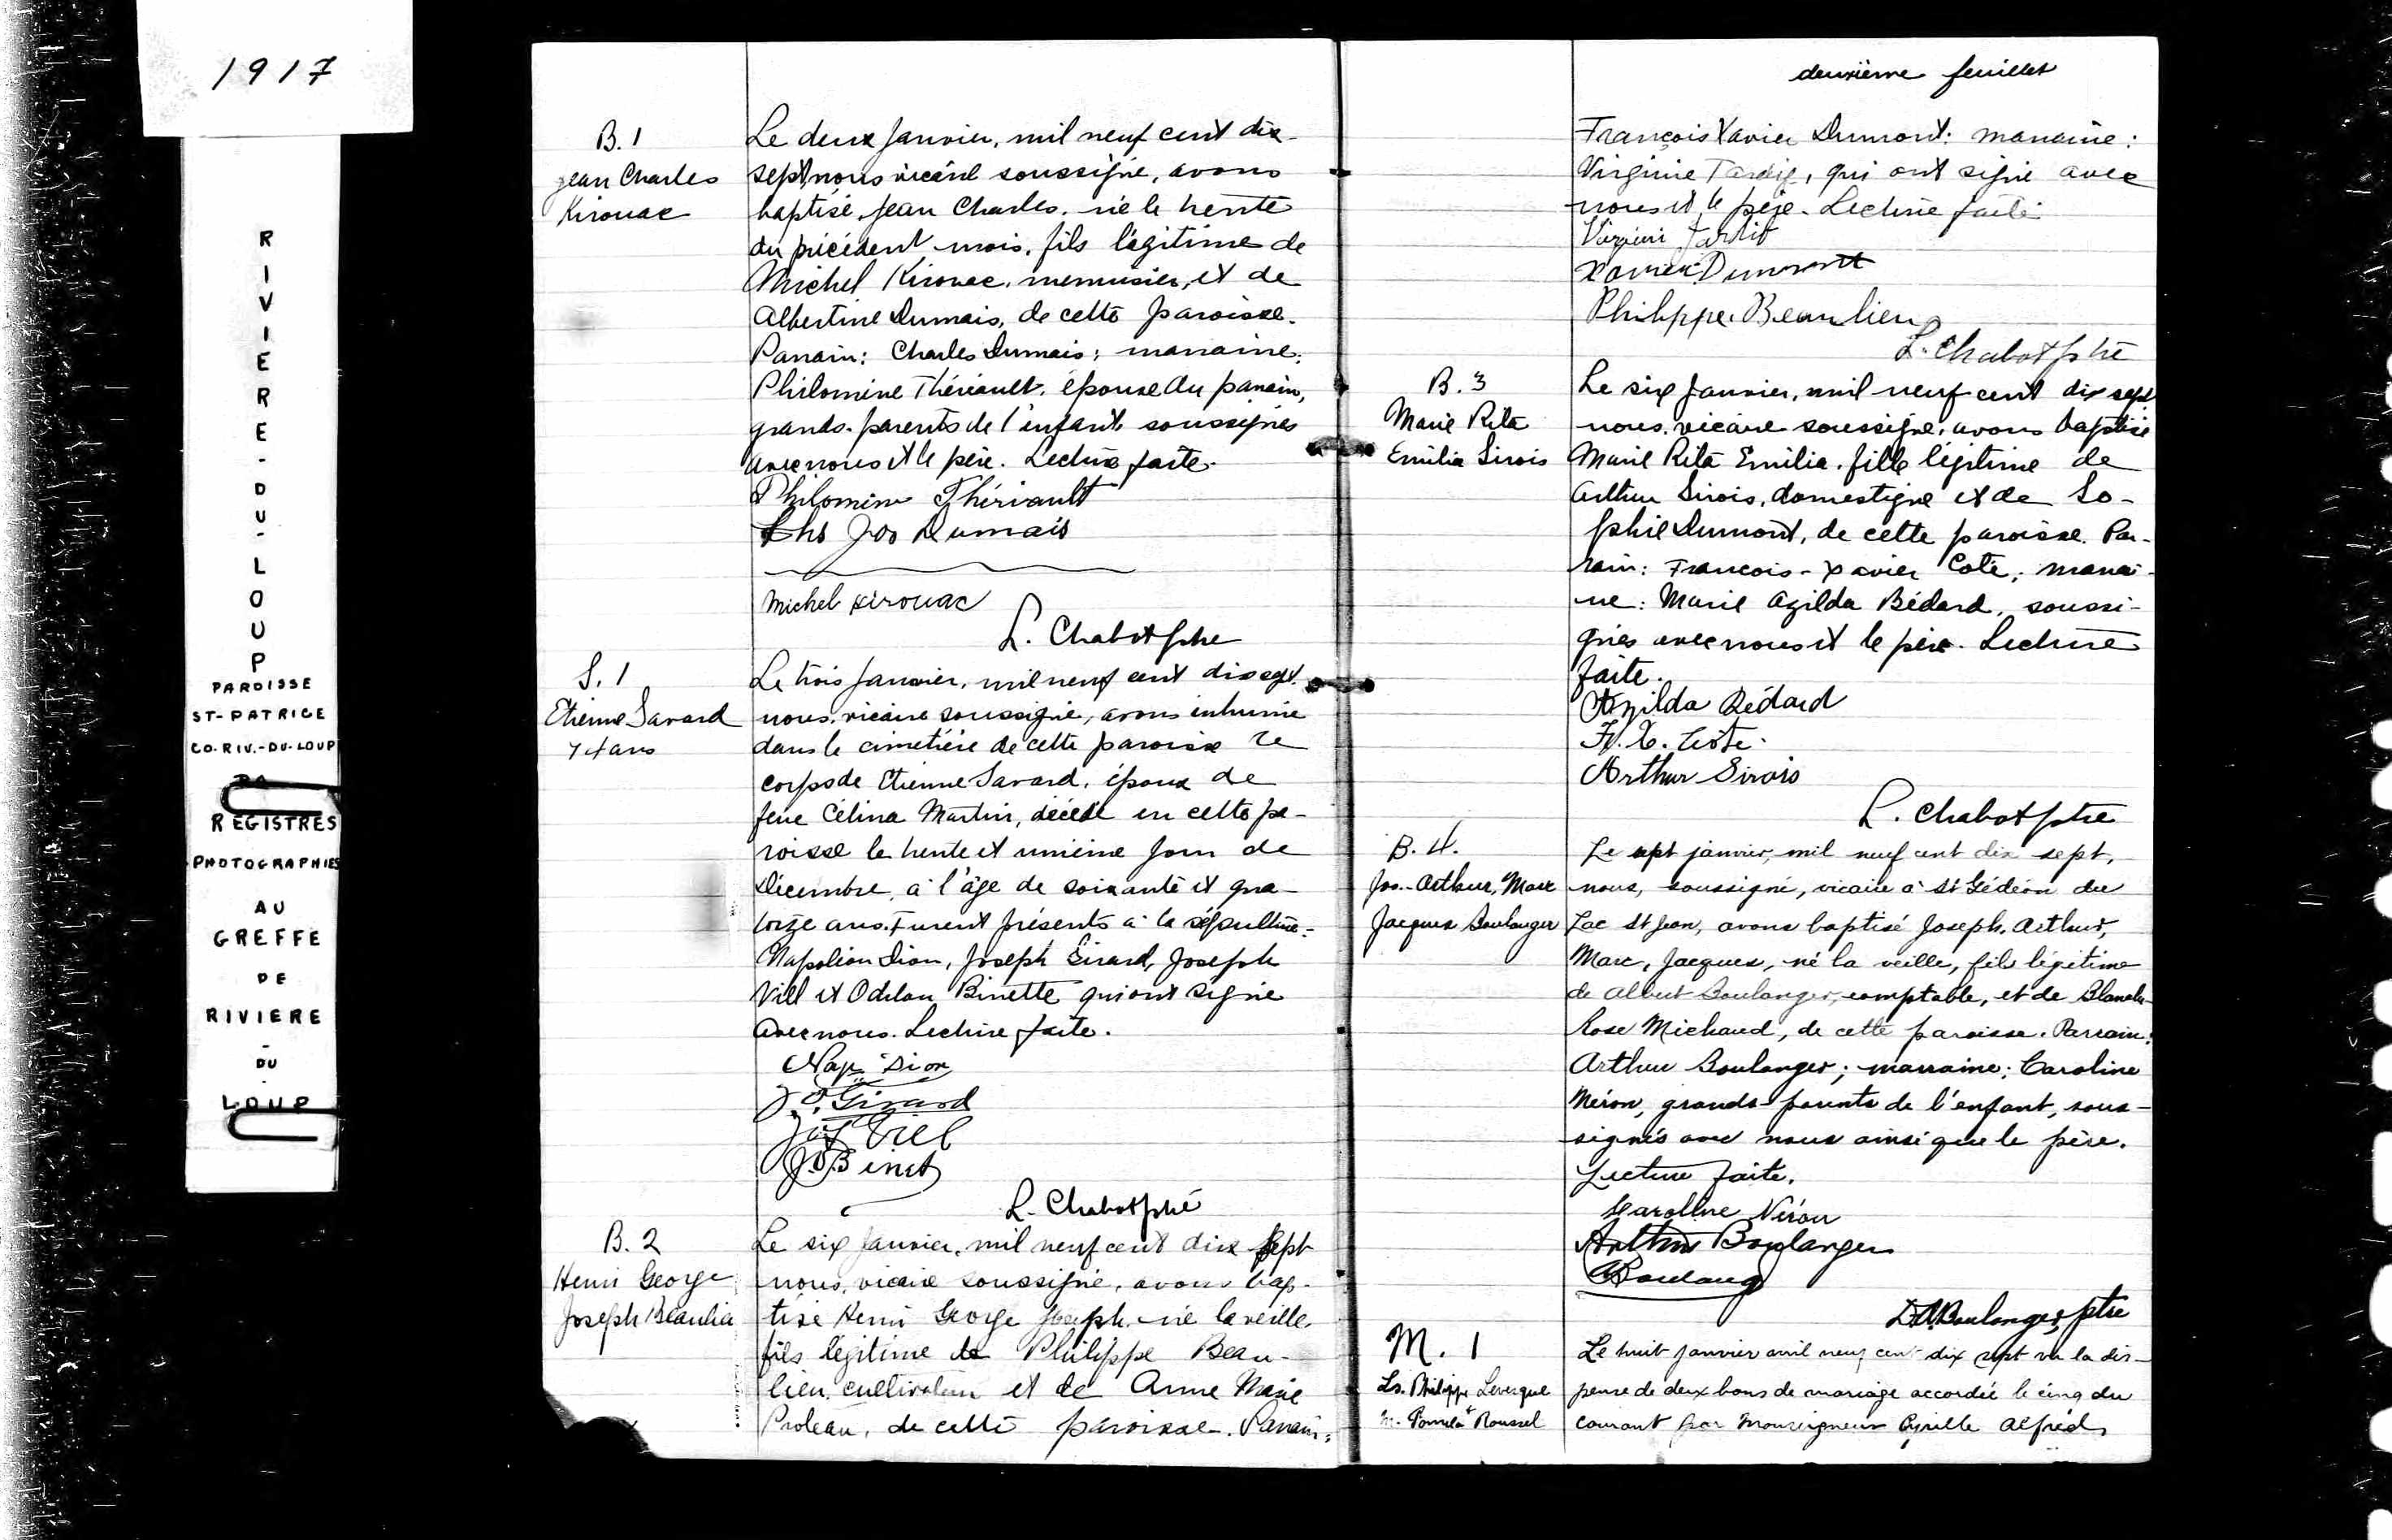 1917
RIVIERE-DU-LOUP
PAROISSE
ST-PATRICE
CO-RIV.-DU-LOUP
REGISTRES
PHOTOGRAPHIES
AU
GREFFE
DE
RIVIERE
-
DU
-
LOUP
B. 1
Jean Charles
Kirouac
Le deux Janvier, mil neuf cent dix-
sept, nous vicaire soussigné, avons
baptisé Jean Charles, né le trente
du précédent mois, fils légitime de
Michel Kirouac, menuisier, et de
Albertine Dumais, de cette paroisse.
Parrain: Charles Dumais; marraine:
Philomène Thériault, épouse du parrain,
grands-parents de l'enfant soussignés
avec nous et le père. Lecture faite.
Philomène Thériault
Chs Jos Dumais
Michel Kirouac
L. Chabot ptre
S. 1
Etienne Savard
74 ans
Le trois Janvier, mil neuf cent dix sept
nous, vicaire soussigné, avons inhumé
dans le cimetière de cette paroisse le
corps de Etienne Savard, époux de
feue Célina Martin, décédé en cette pa-
roisse le trente et unième jour de
Décembre à l'âge de soixante et qua-
torze ans. Furent présents à la sépulture:
Napoléon Dion, Joseph Girard, Joseph
Viel et Odilon Binette qui ont signé
avec nous. Lecture faite.
Nap Dion
J. O. Girard
Jos Viel
J O Binet
L. Chabot ptre
B. 2
Henri George
Joseph Beaulieu
Le six Janvier, mil neuf cent dix sept
nous, vicaire soussigné, avons bap-
tisé Henri George Joseph, né la veille,
fils légitime de Philippe Beau-
lieu, cultivateur et de Anne Marie
Proteau, de cette paroisse. Parrain:
deuxième feuillet
François Xavier Dumont: marraine:
Virginie Tardif, qui ont signé avec
nous et le père. Lecture faite
Virginie Tardif
Xavier Dumont
Philippe Beaulieu
L. Chabot ptre
B. 3
Marie Rita
Emilia Sirois
Le six Janvier, mil neuf cent dix sept
nous, vicaire soussigné, avons baptisé
Marie Rita Emilia, fille légitime de
Arthur Sirois, domestique et de So-
phie Dumont, de cette paroisse. Par-
rain: François-Xavier Coté; marrai-
ne: Marie Azilda Bédard, soussi-
gnés avec nous et le père. Lecture
faite.
Azilda Bédard
F. X. Coté
Arthur Sirois
L. Chabot ptre
B. 4.
Jos.-Arthur, Marc
Jacques Boulanger
Le sept janvier, mil neuf cent dix sept,
nous, soussigné, vicaire à St Gédéon du
Lac St Jean, avons baptisé Joseph, Arthur,
Marc, Jacques, né la veille, fils légitime
de Albert Boulanger, comptable, et de Blanche-
Rose Michaud, de cette paroisse. Parrain:
Arthur Boulanger; marraine: Caroline
Néron, grands-parents de l'enfant, sous-
signés avec nous ainsi que le père.
Lecture faite.
Caroline Néron
Arthur Boulanger
A Boulanger
D. A. Boulanger, ptre
M. 1
Ls. Philippe Levesque
+
M. Pamela Roussel
Le huit janvier mil neuf cent dix sept vu la dis-
pense de deux bans de mariage accordée le cinq du
courant par Monseigneur Cyrille Alfred